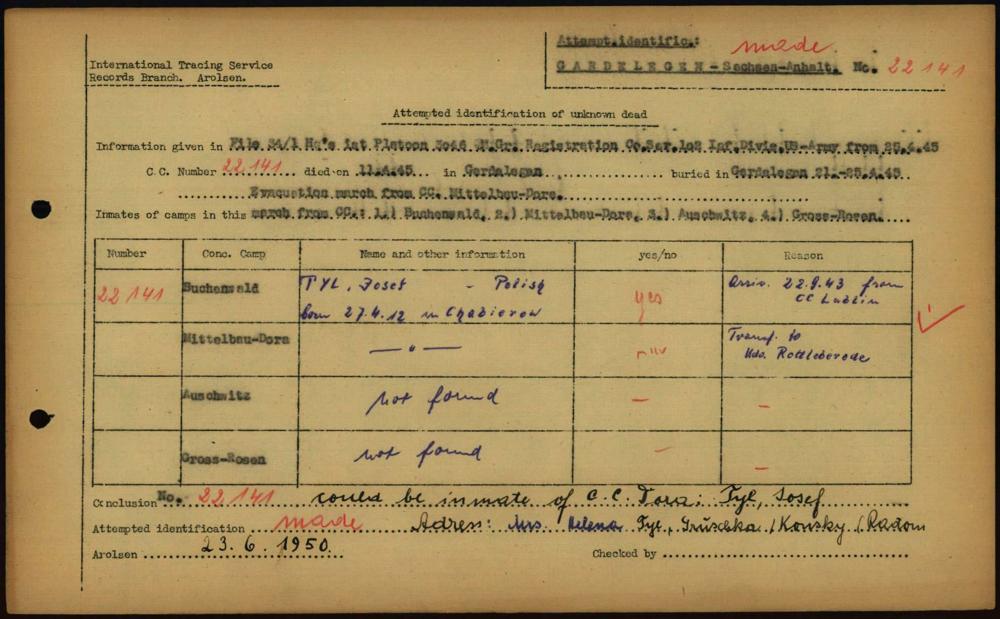 Attempt.identific.: made.
International Tracing Service
Records Branch. Arolsen.
GARDELEGEN-Sachsen-Anhalt. No. 22141
Attempted identification of unknown dead
Information given in File 24/1 Hq's 1st Platoon 3046 Gr. Registration Co.Ser.102 Inf.Divis.US-Army from 25.4.45
C.C. Number 22.141 died on 11.4.45 in Gardelegen buried in Gardelegen 21.-25.4.45
Evacuation march from CC. Mittelbau-Dora.
Inmates of camps in this march from CC.: 1.) Buchenwald, 2.) Mittelbau-Dora, 3.) Auschwitz, 4.) Gross-Rosen.
Number Conc. Camp Name and other information yes/no Reason
22141 Buchenwald TYL, Josef - Polish yes Arriv. 22.9.43 from
born 27.4.12 in Chabierow CC Lublin
Mittelbau-Dora — " — Transf. to
Kdo. Rottleberode
Auschwitz not found — —
Gross-Rosen not found — —
Conclusion No. 22141 could be inmate of C.C. Dora: Tyl, Josef
Attempted identification made Adress: Mrs. Helena Tyl, Gruschka /Konsky /Radom
Arolsen 23.6.1950. Checked by